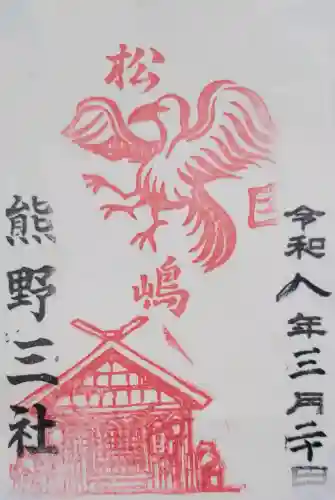 令和八年三月二十四日
松嶋
熊野三社